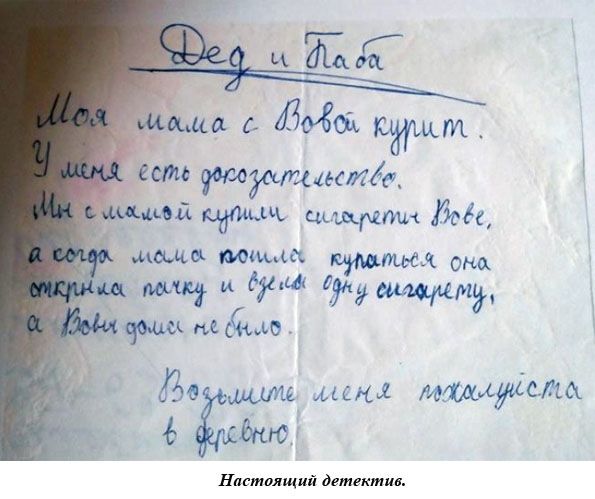 Дед и Баба
Моя мама с Вовой курит.
У меня есть докозательство.
Мы с мамой купили сигареты Вове,
а когда мама пошла купаться она
открыла пачку и взела одну сигарету,
а Вовы дома не было.
Возьмите меня пожалуйста
в деревню.
Настоящий детектив.